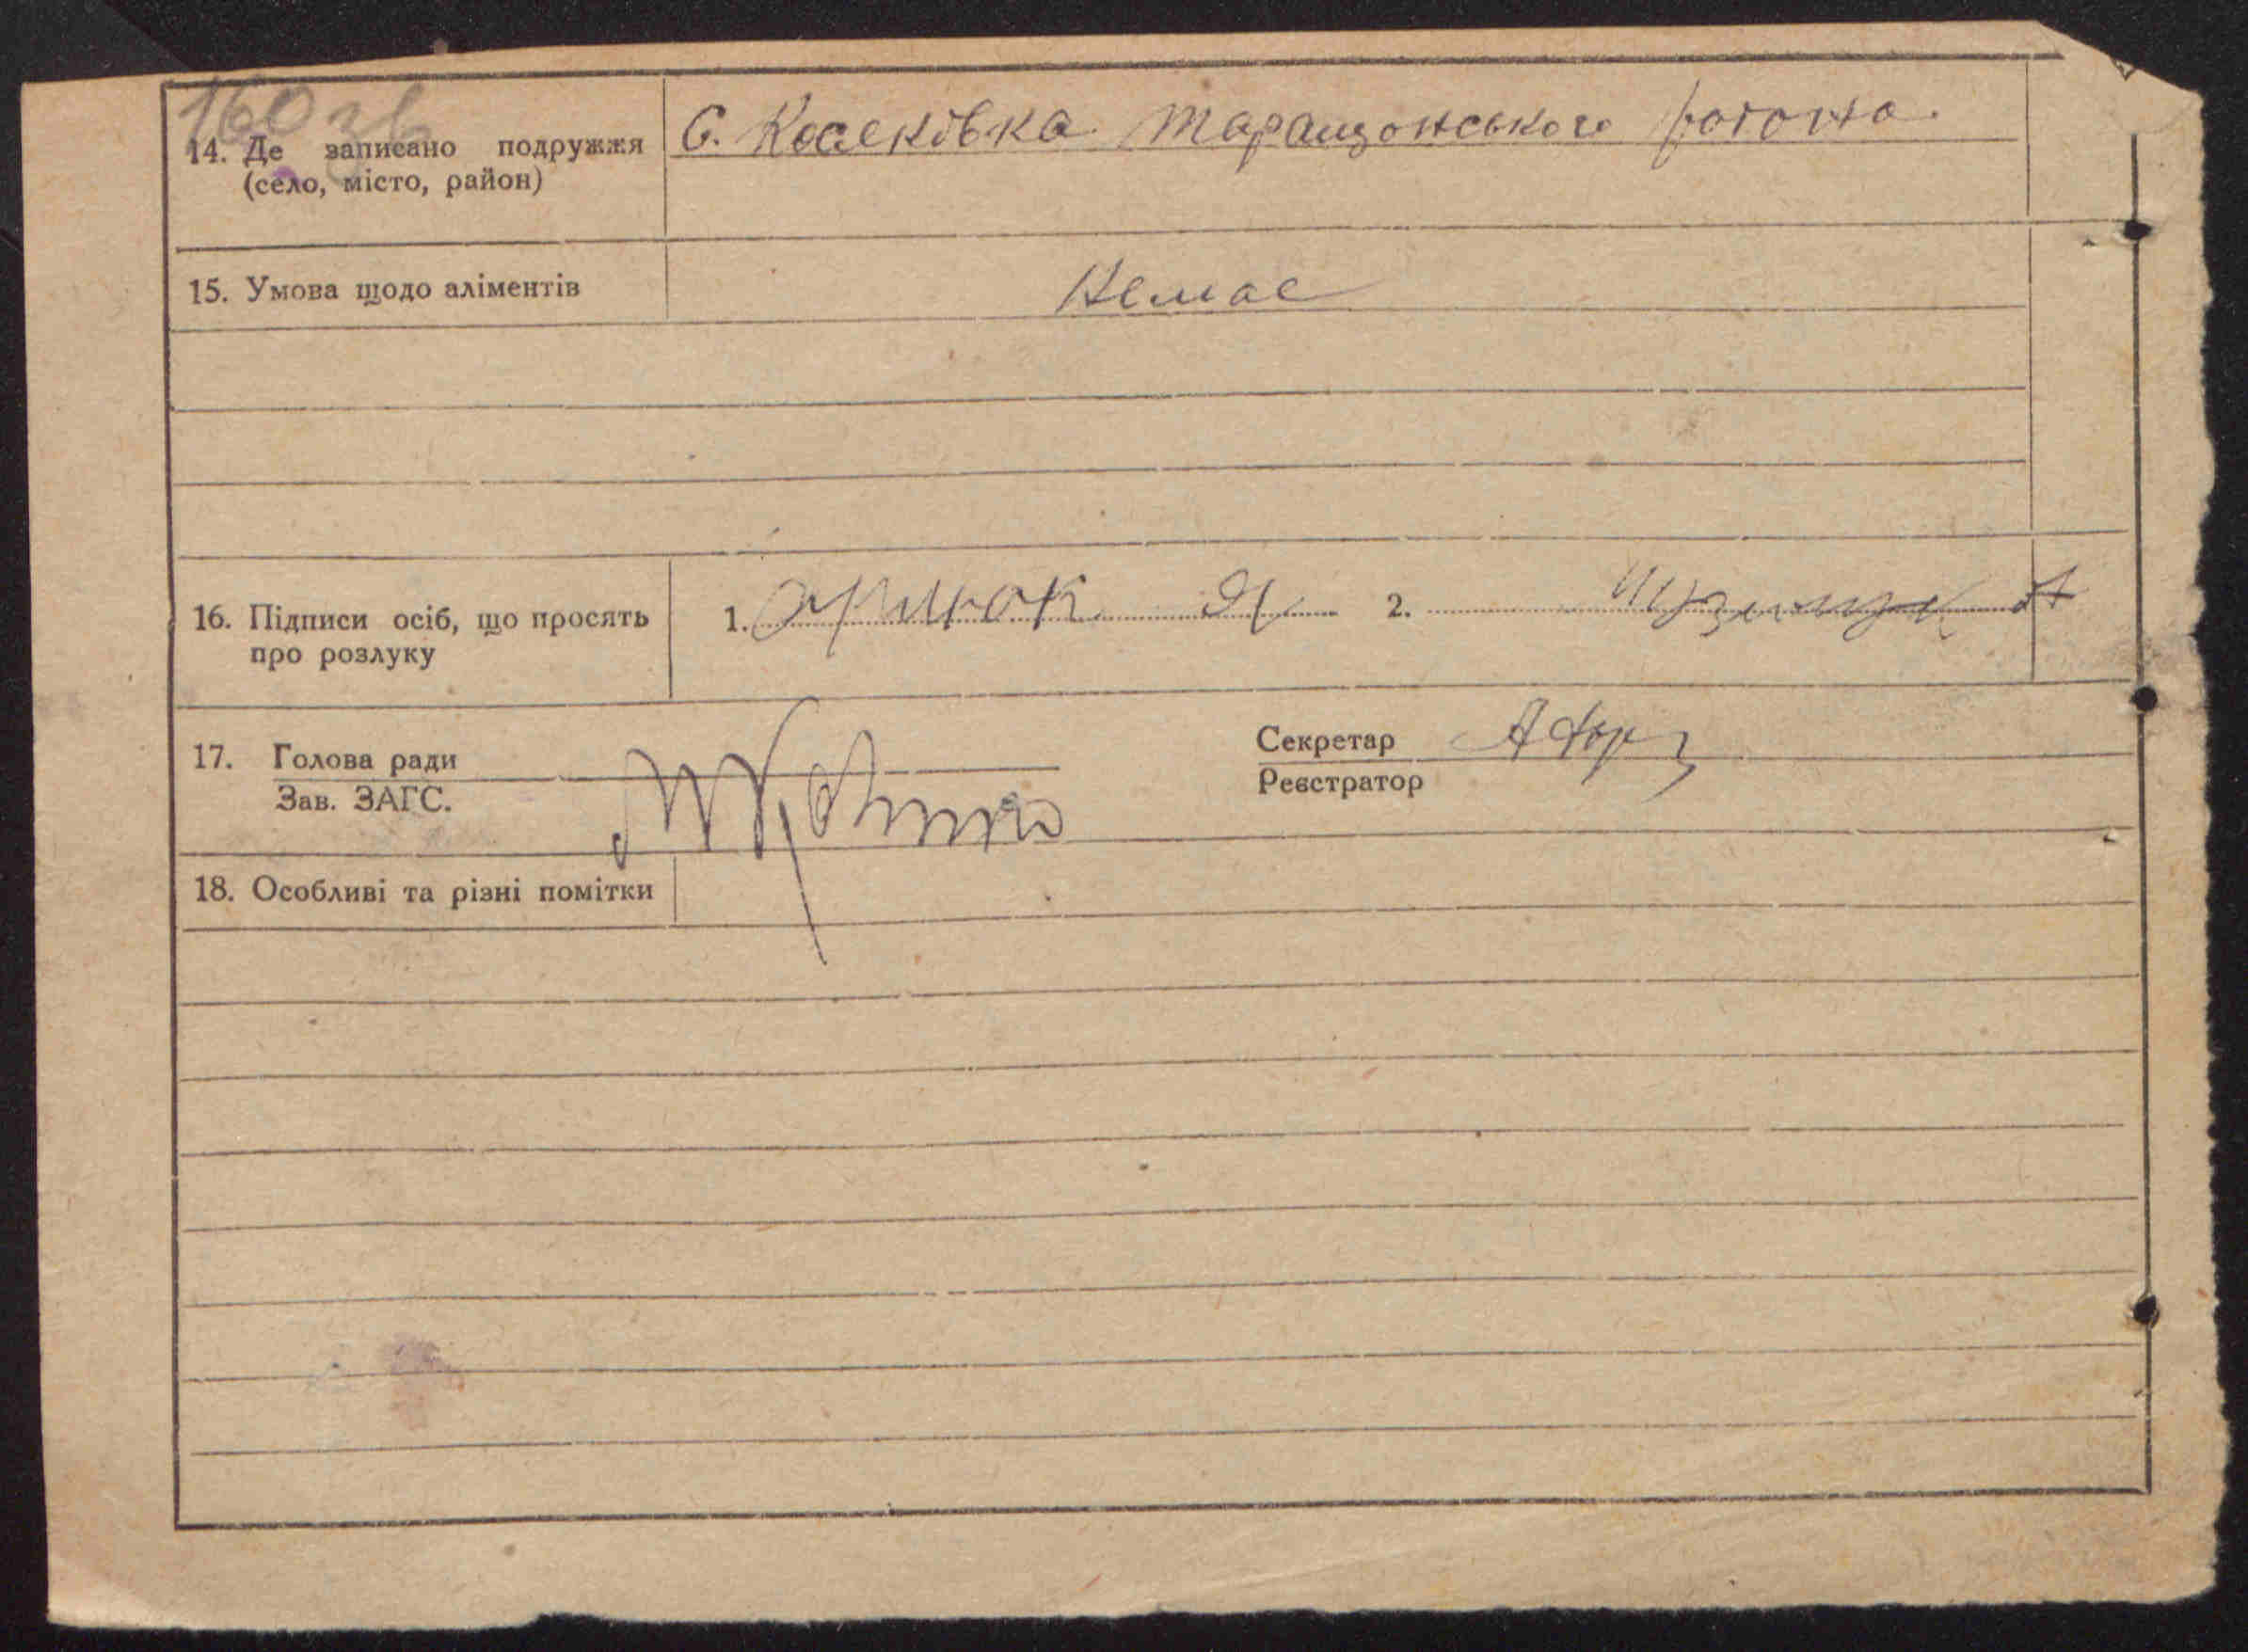 160 зв
14. Де записано подружжя
(село, місто, район)
С. Косяківка Таращанського району.
15. Умова щодо аліментів
Немає
16. Підписи осіб, що просять
про розлуку
1.
2.
17. Голова ради
Зав. ЗАГС.
Секретар
Реєстратор
18. Особливі та різні помітки